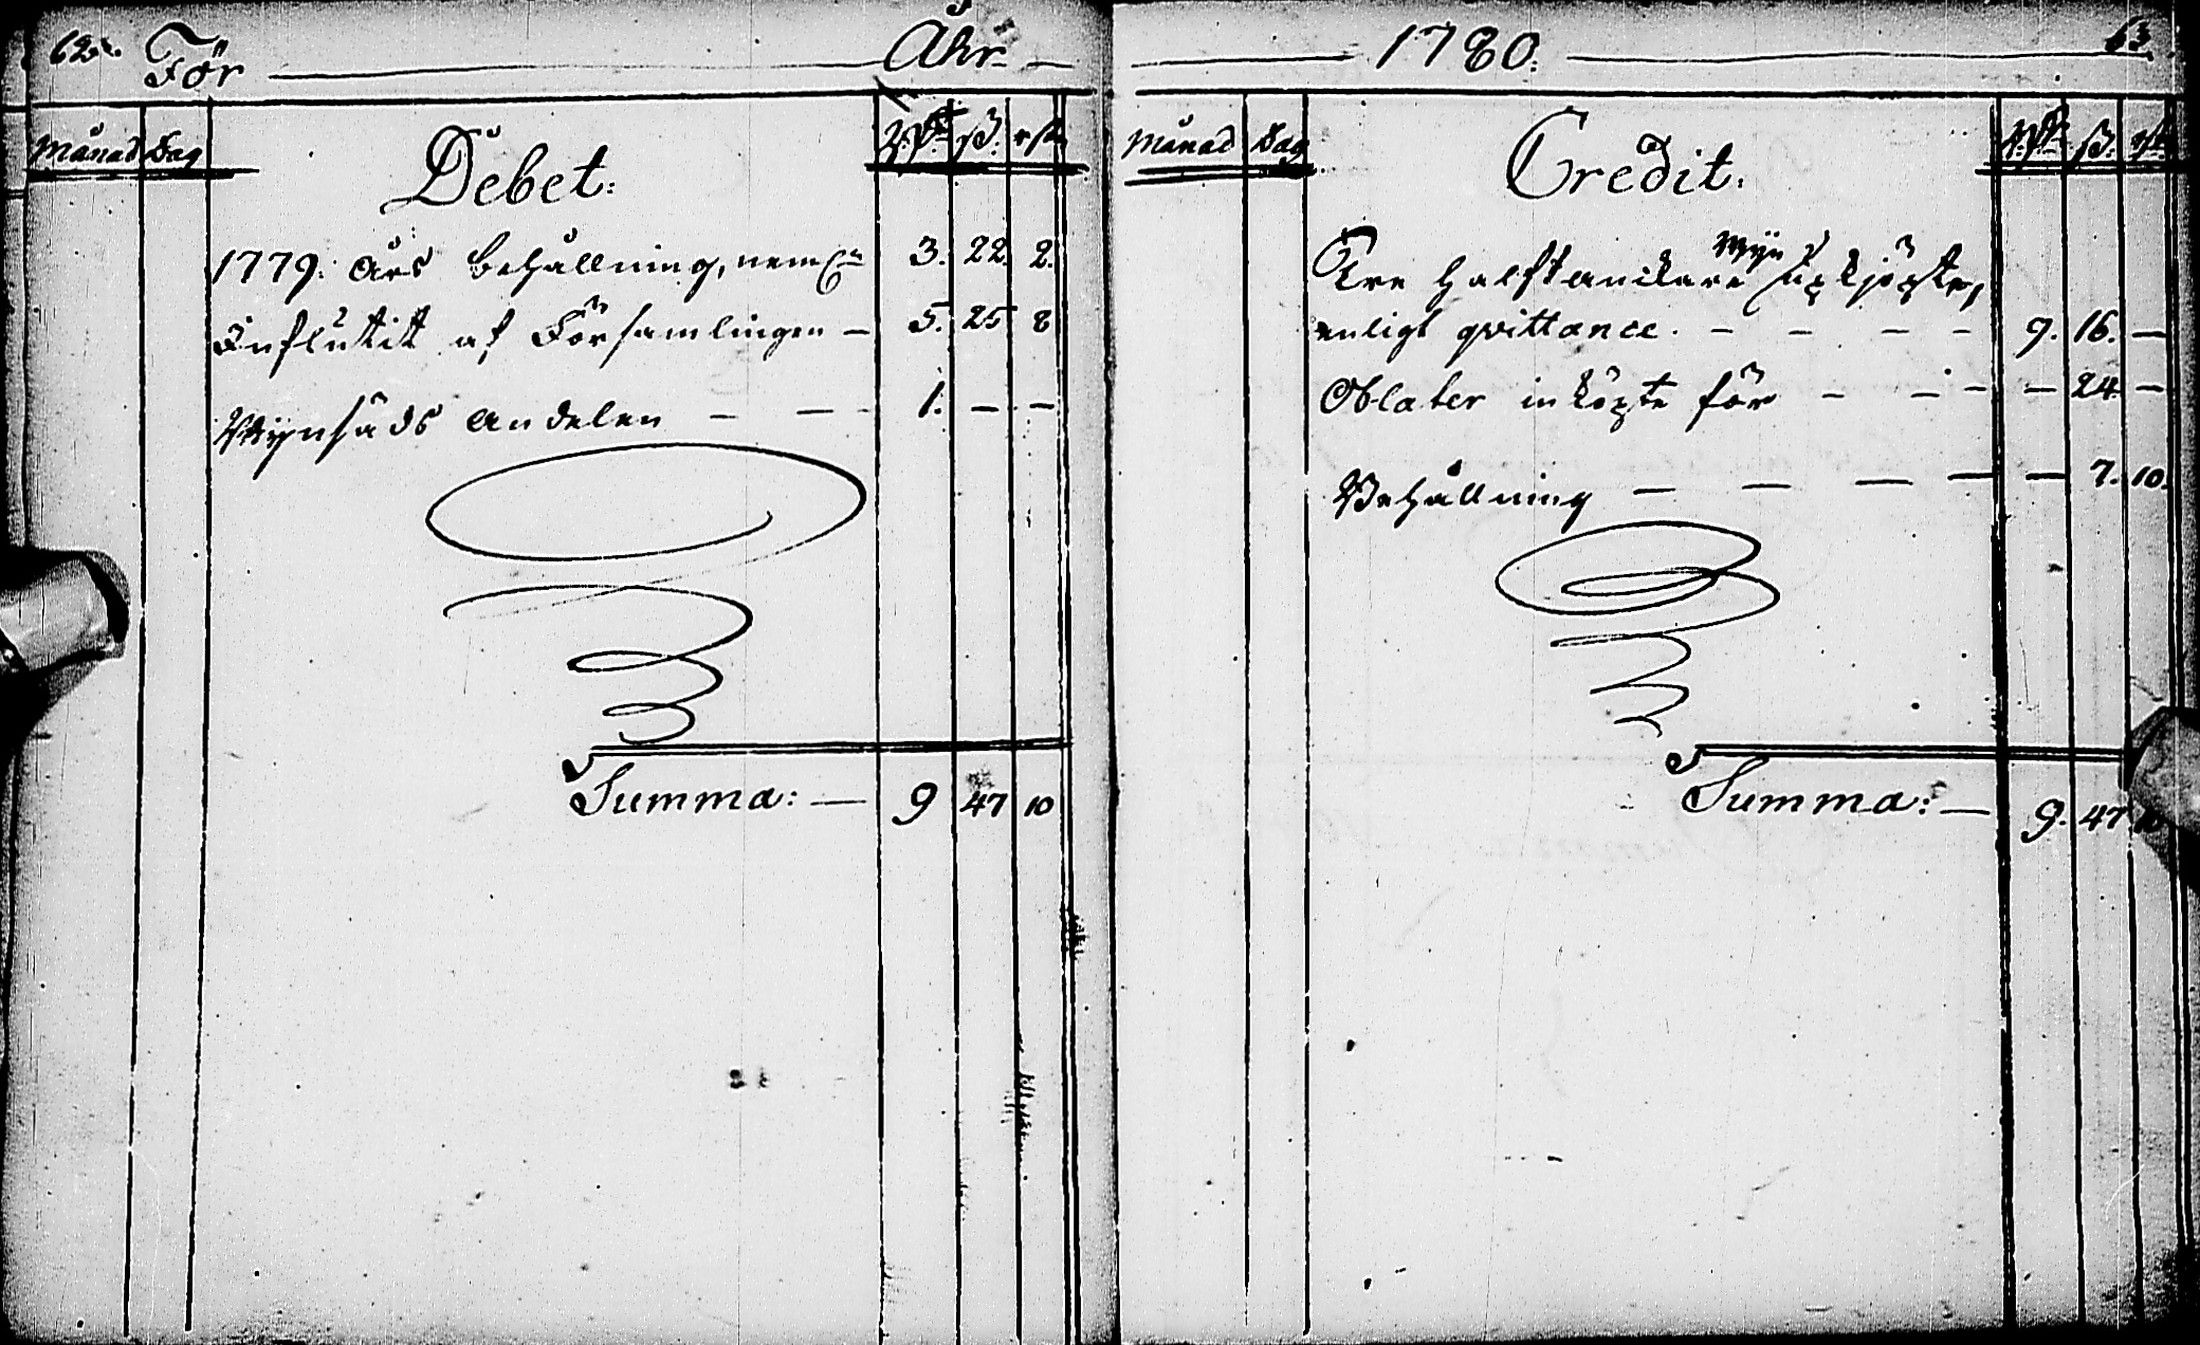 62. För Åhr
Månad Dag Debet: R.dr ß. rst.
1779. Års behållning, neml: 3. 22. 2.
Influtit af Församlingen — 5. 25 8
Wijnsäds andelen — — 1. — —
Summa: — 9 47 10
1780. 63.
Månad Dag Credit. R.dr ß. rst.
Wijn
Tre halfanckare upkjöpte,
enligt qvittance. — — — — 9. 16. —
Oblater inköpte för — — — — 24. —
Behållning — — — — — 7. 10.
Summa: — 9. 47 10